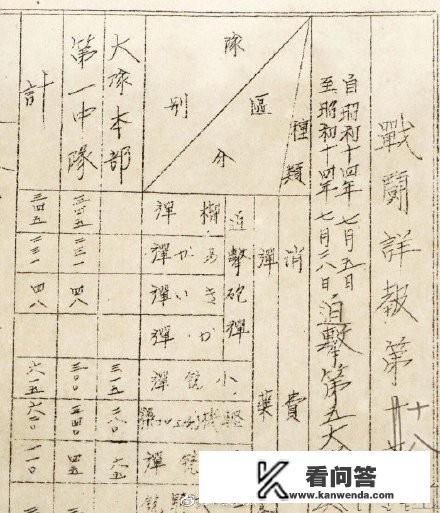 戰闘詳報第十八
自昭和十四年七月五日
至昭和十四年七月二八日迫擊第五大
種類
隊區分別
消費
彈藥
迫擊砲彈
榴彈
あか彈
きい彈
か彈
小銃彈
輕機
銃彈
大隊本部
三一五
六五
第一中隊
三四五
二三一
四八
三〇〇
三四〇
四五
計
三四五
二三一
四八
六一五
一一〇
看问答
www.kanwenda.com